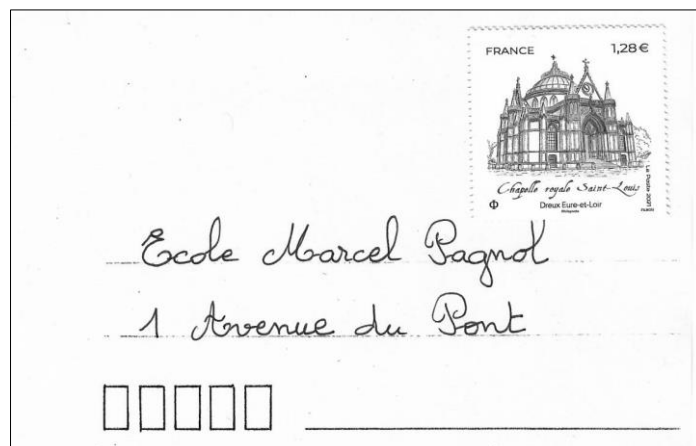 FRANCE 1,28 €
Chapelle royale Saint-Louis
Dreux Eure-et-Loir
La Poste 2021
Ecole Marcel Pagnol
1 Avenue du Pont